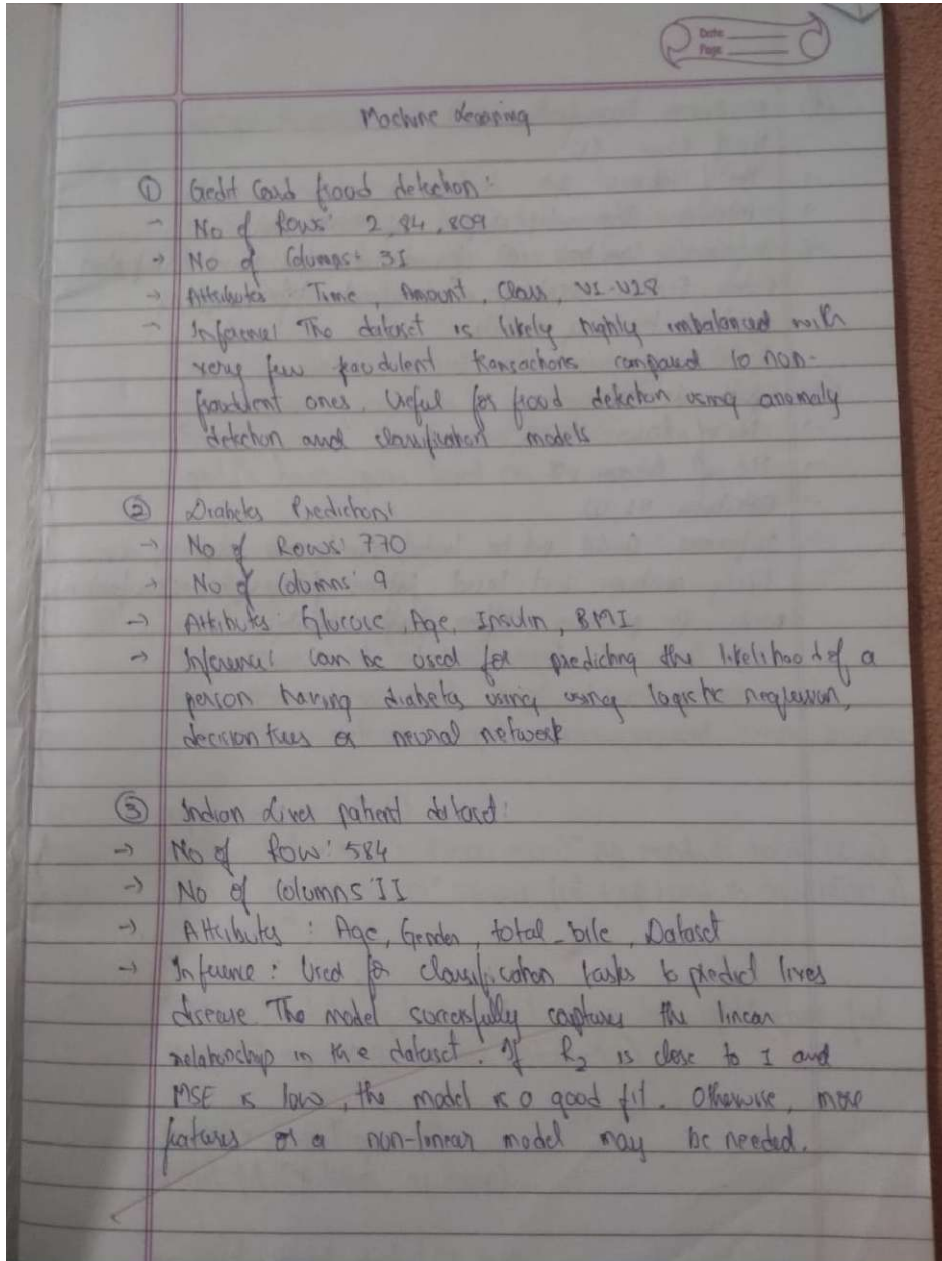 Date
Page
Machine Learning
① Credit Card frood detection:
→ No of Rows: 2,84,809
→ No of Columns: 31
→ Attributes Time, Amount, Class, V1-V28
→ Inference: The dataset is likely highly imbalanced with
very few fraudulent transactions compared to non-
fraudulent ones. Useful for frood detection using anomaly
detection and classification models
② Diabetes Prediction:
→ No of Rows: 770
→ No of Columns: 9
→ Attributes: Glucose, Age, Insulin, BMI
→ Inference: Can be used for predicting the likelihood of a
person having diabetes using using logistic regression,
decision trees or neural network
③ Indian Liver patient dataset:
→ No of Row: 584
→ No of Columns 11
→ Attributes: Age, Gender, total_bile, Dataset
→ Inference: Used for classification tasks to predict liver
disease The model successfully captures the linear
relationship in the dataset. If R2 is close to 1 and
MSE is low, the model is a good fit. Otherwise, more
features or a non-linear model may be needed.